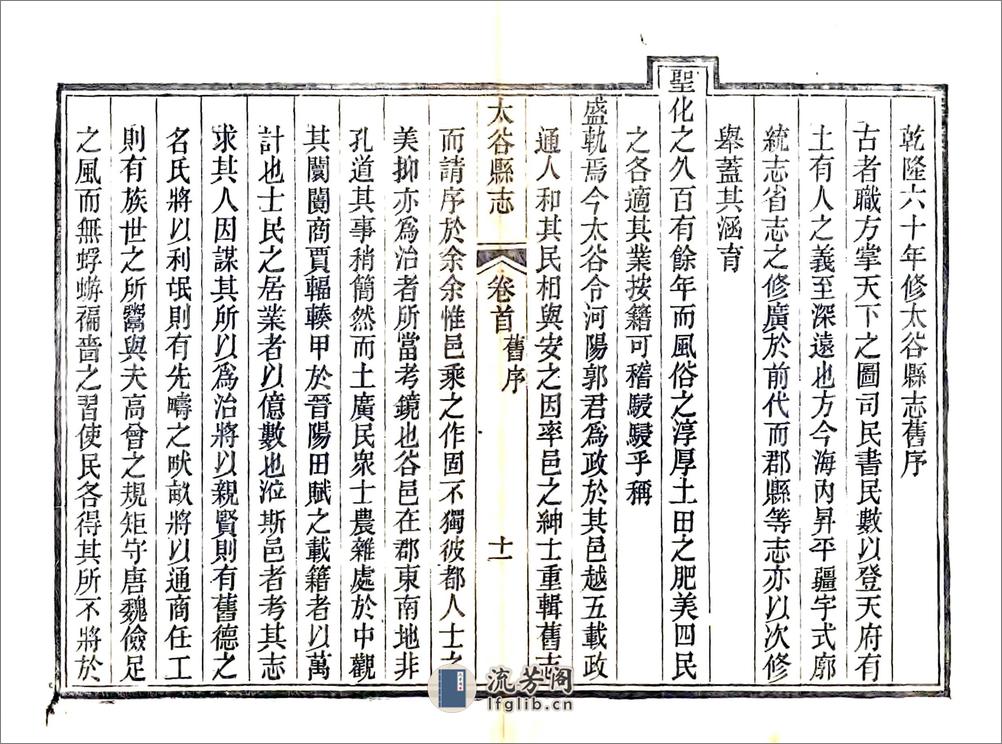 乾隆六十年修太谷縣志舊序
古者職方掌天下之圖司民書民數以登天府有
土有人之義至深遠也方今海內昇平疆宇式廓
統志省志之修廣於前代而郡縣等志亦以次修
舉蓋其涵育
聖化之久百有餘年而風俗之淳厚土田之肥美四民
之各適其業按籍可稽駸駸乎稱
盛軌焉今太谷令河陽郭君為政於其邑越五載政
通人和其民相與安之因率邑之紳士重輯舊志
太谷縣志 卷首 舊序 十一
而請序於余余惟邑乘之作固不獨彼都人士之
美抑亦為治者所當考鏡也谷邑在郡東南地非
孔道其事稍簡然而土廣民衆士農雜處於中觀
其闤闠商賈輻輳甲於晉陽田賦之載籍者以萬
計也士民之居業者以億數也涖斯邑者考其志
求其人因謀其所以為治將以親賢則有舊德之
名氏將以利氓則有先疇之畎畝將以通商任工
則有族世之所鬻與夫高曾之規矩守唐魏儉足
之風而無蜉蝣褊嗇之習使民各得其所不將於
流芳閣
lfglib.cn